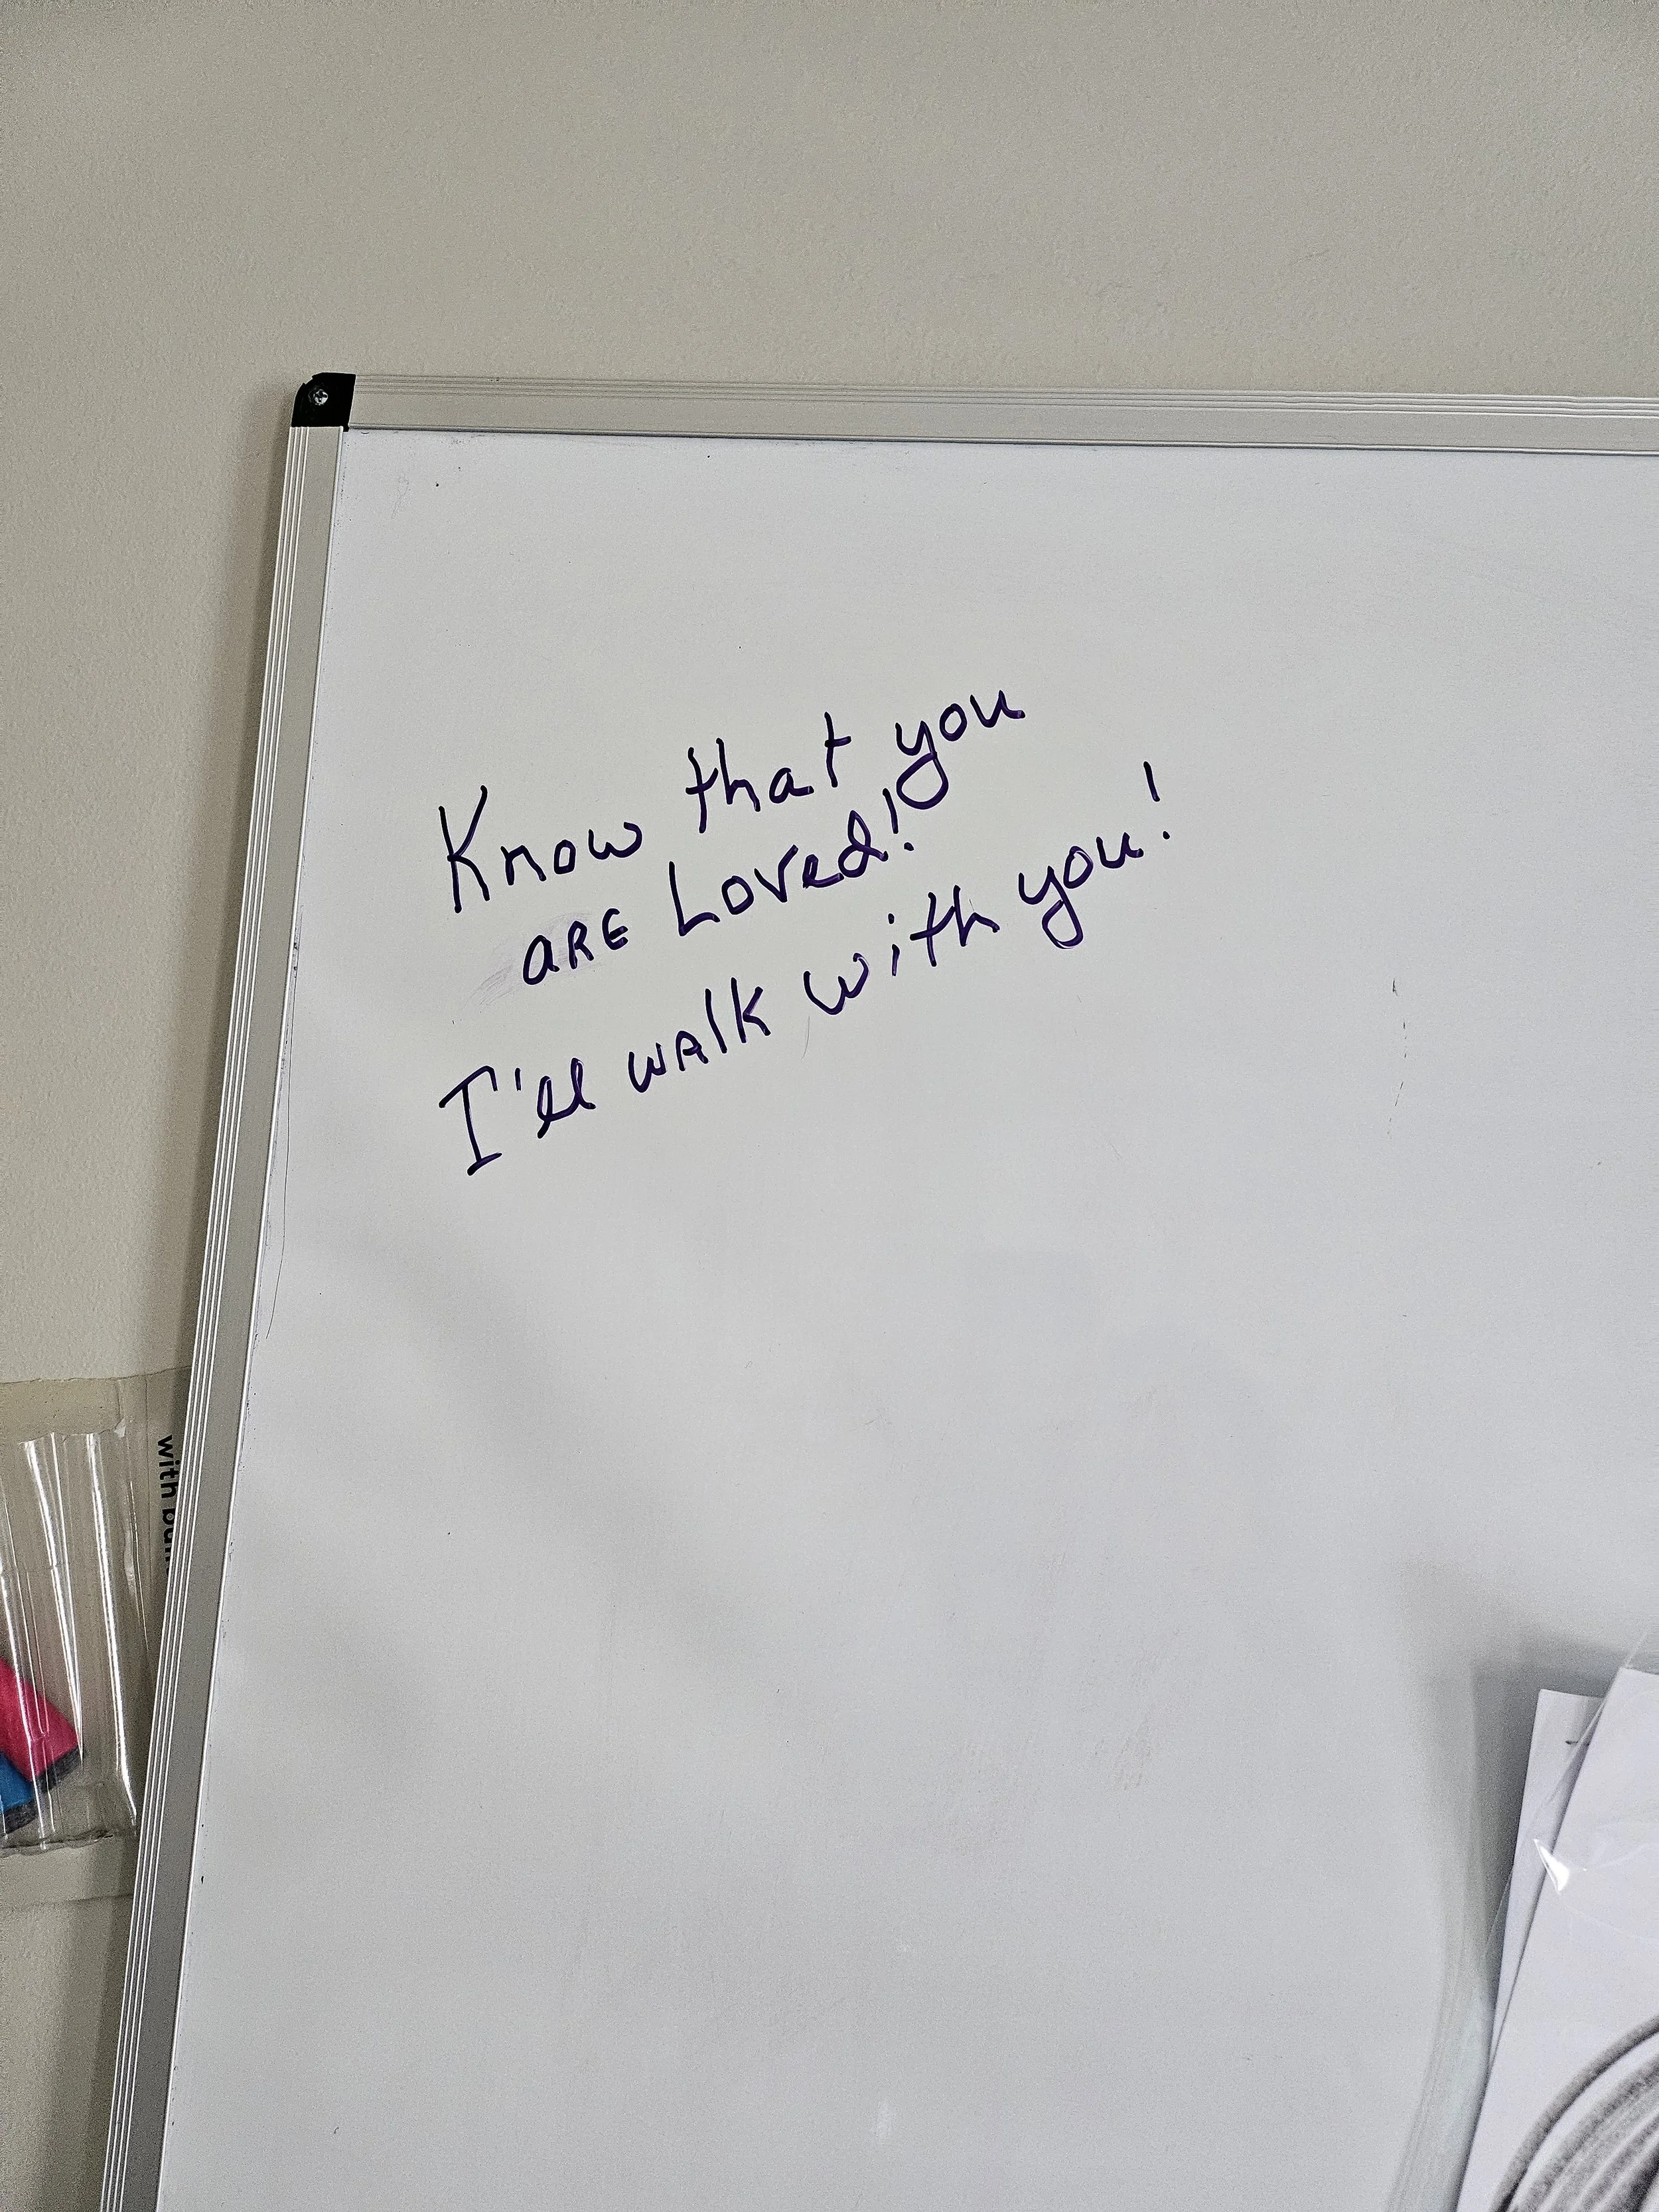 Know that you
are Loved!
I'll walk with you!
with